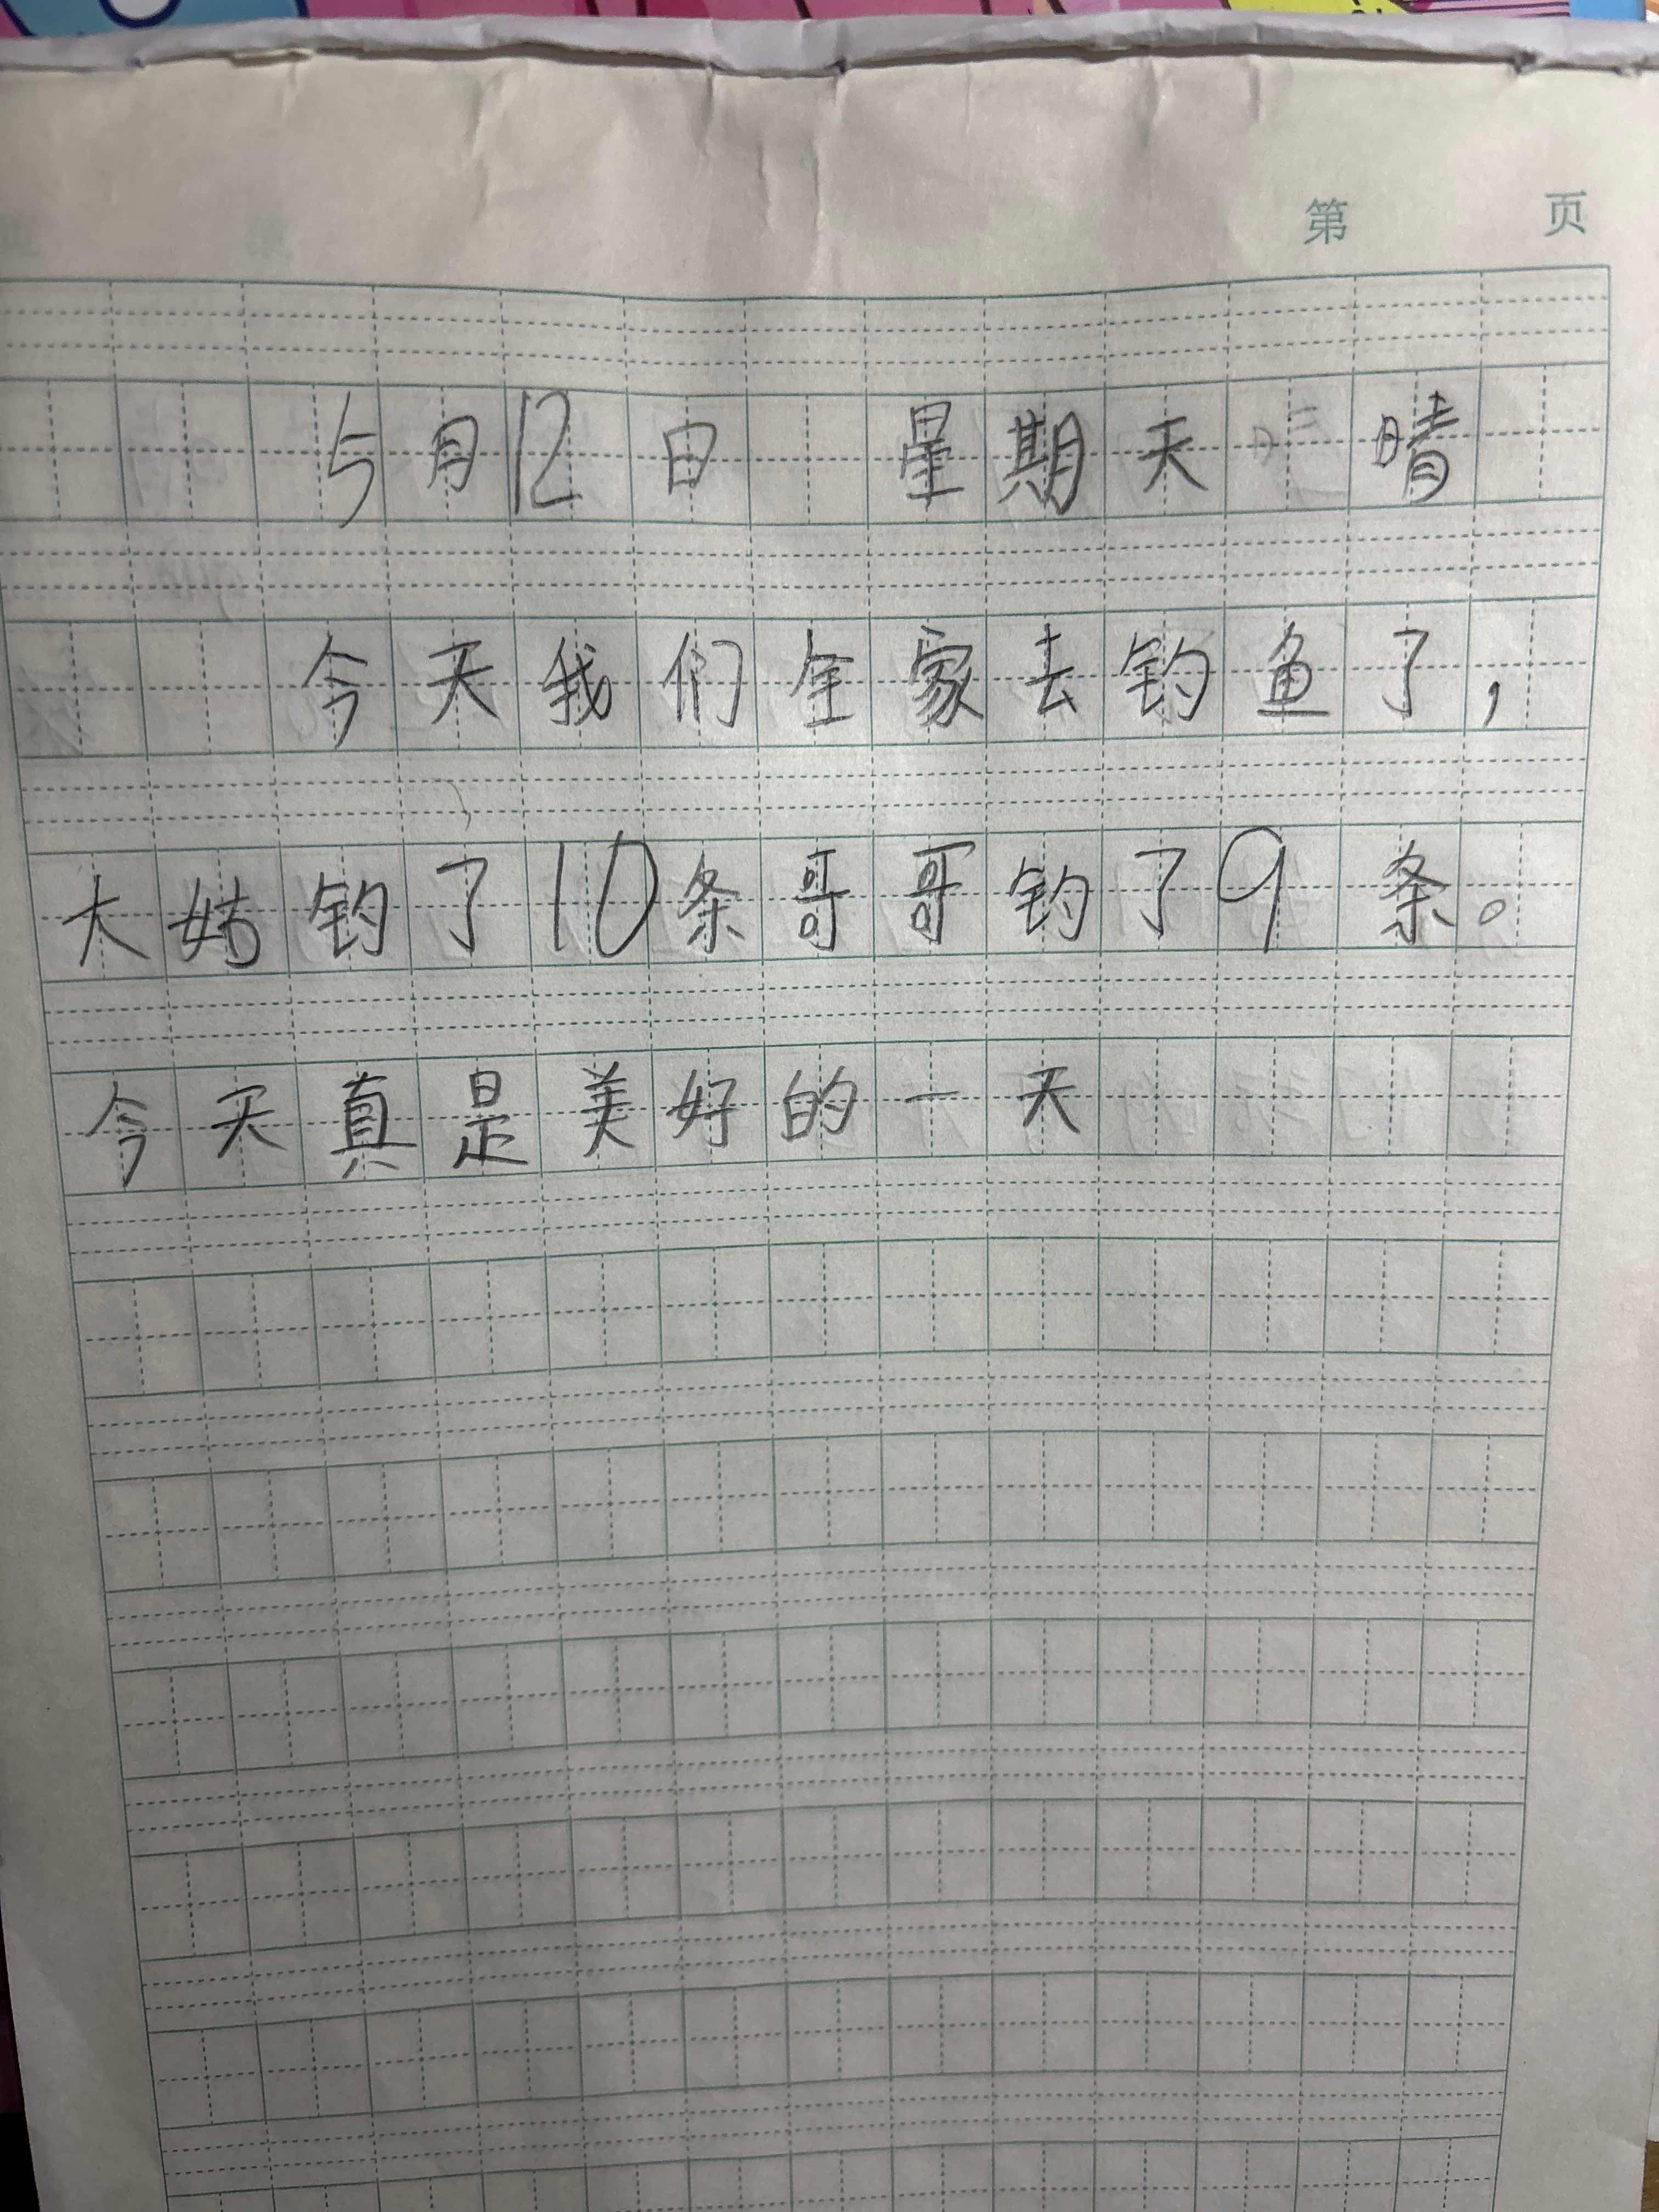 第 页
5月12日 星期天 晴
今天我们全家去钓鱼了,
大姑钓了10条哥哥钓了9条。
今天真是美好的一天